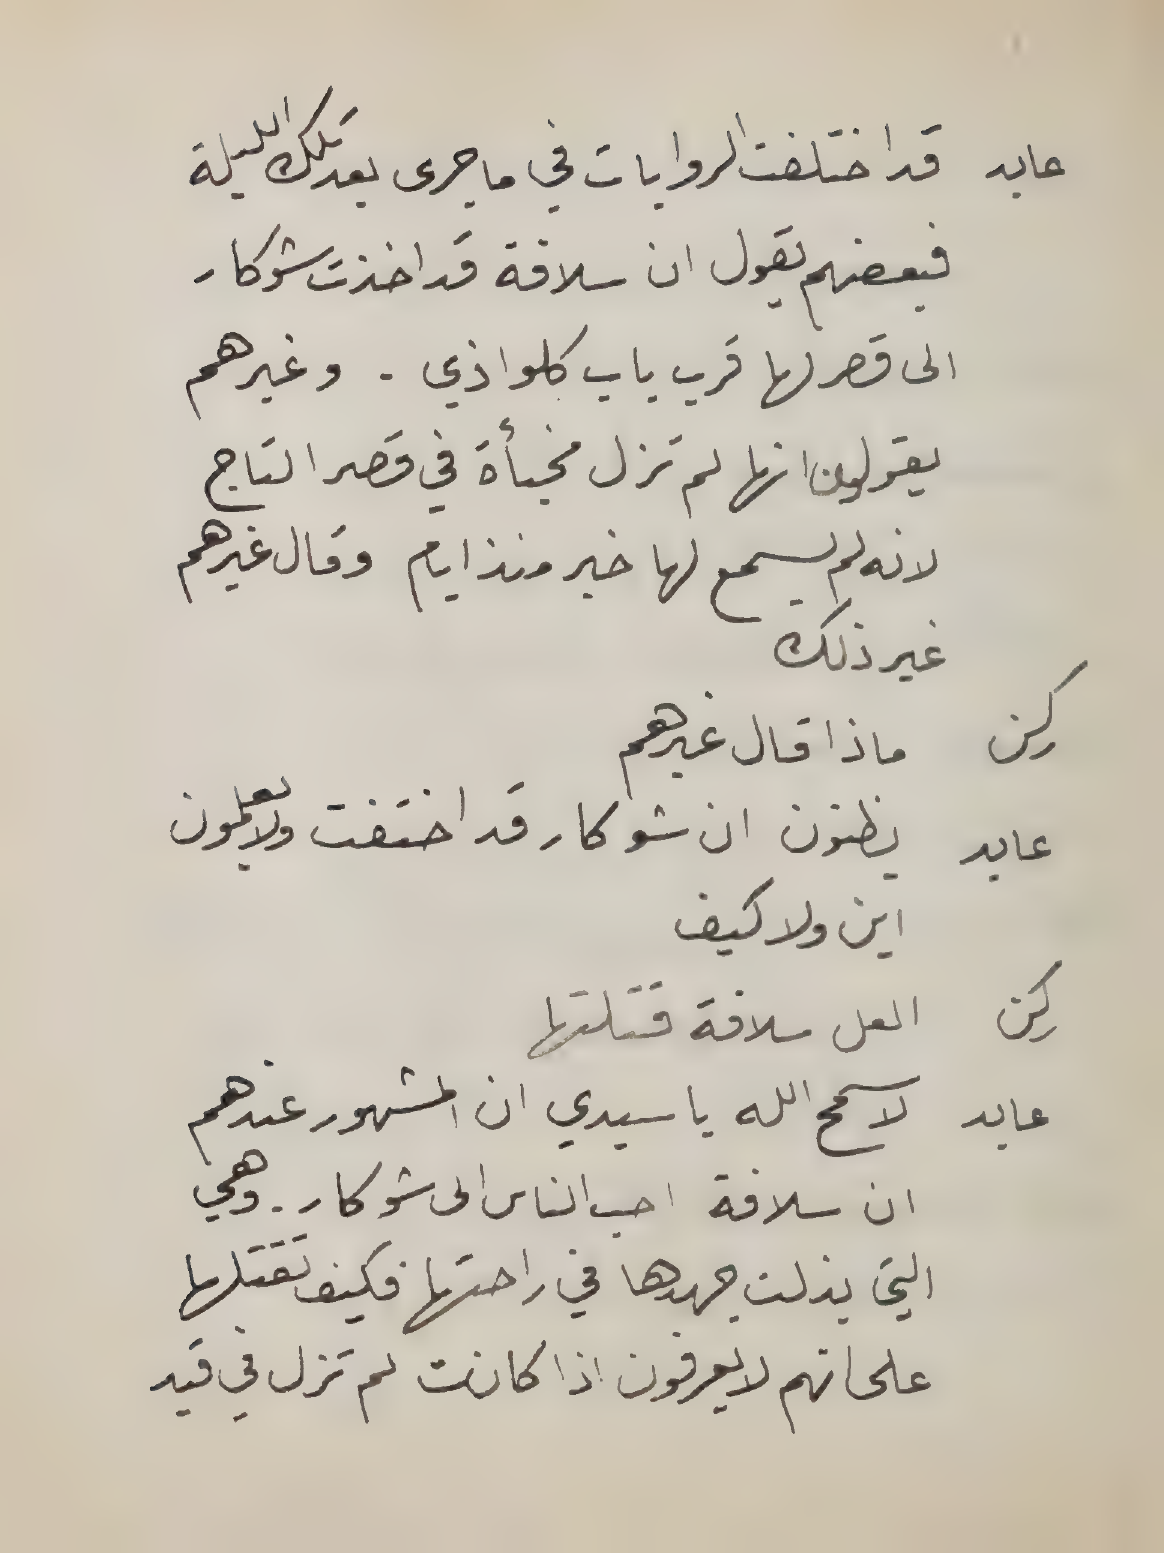 عابد قد اختلفت الروايات في ما جرى بعد تلك الليلة
فبعضهم يقول ان سلافة قد اخذت شوكار
الى قصر لها قرب باب كلواذي . وغيرهم
يقولون انها لم تزل مخبأة في قصر التاج
لانه لم يسمع لها خبر منذ ايام وقال غيرهم
غير ذلك
ركن ماذا قال غيرهم
عابد يظنون ان شوكار قد اختفت ولا يعلمون
اين ولا كيف
ركن العل سلافة قتلتها
عابد لا سمح الله يا سيدي ان المشهور عندهم
ان سلافة احب الناس الى شوكار . وهي
التي بذلت جهدها في راحتها فكيف تقتلها
على انهم لا يعرفون اذا كانت لم تزل في قيد